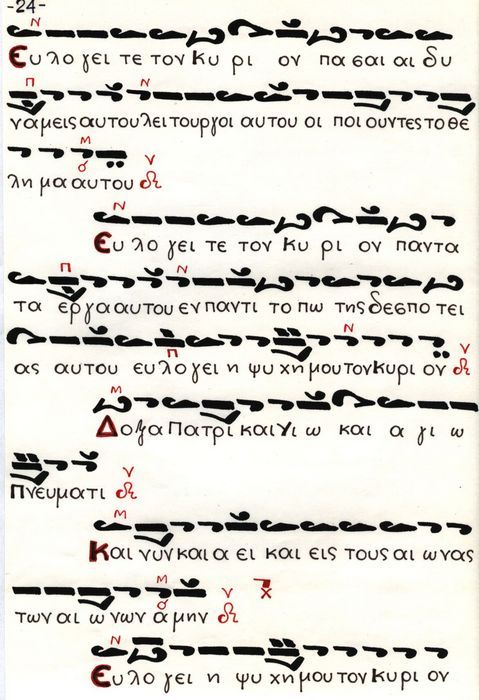 -24-
Ευ λο γει τε τον Κυ ρι ον πα σαι αι δυ
νάμεις αυτου λειτουργοι αυτου οι ποι ουντες το θε
λη μα αυτου
Ευ λο γει τε τον Κυ ρι ον παντα
τα εργα αυτου εν παντι το πω της δεσπο τει
ας αυτου ευ λο γει η ψυ χη μου τον Κυρι ον
Δοξα Πατρι και Υι ω και α γι ω
Πνευματι
Και νυν και α ει και εις τους αι ωνας
των αι ω νων α μην
Ευ λο γει η ψυ χη μου τον Κυρι ον